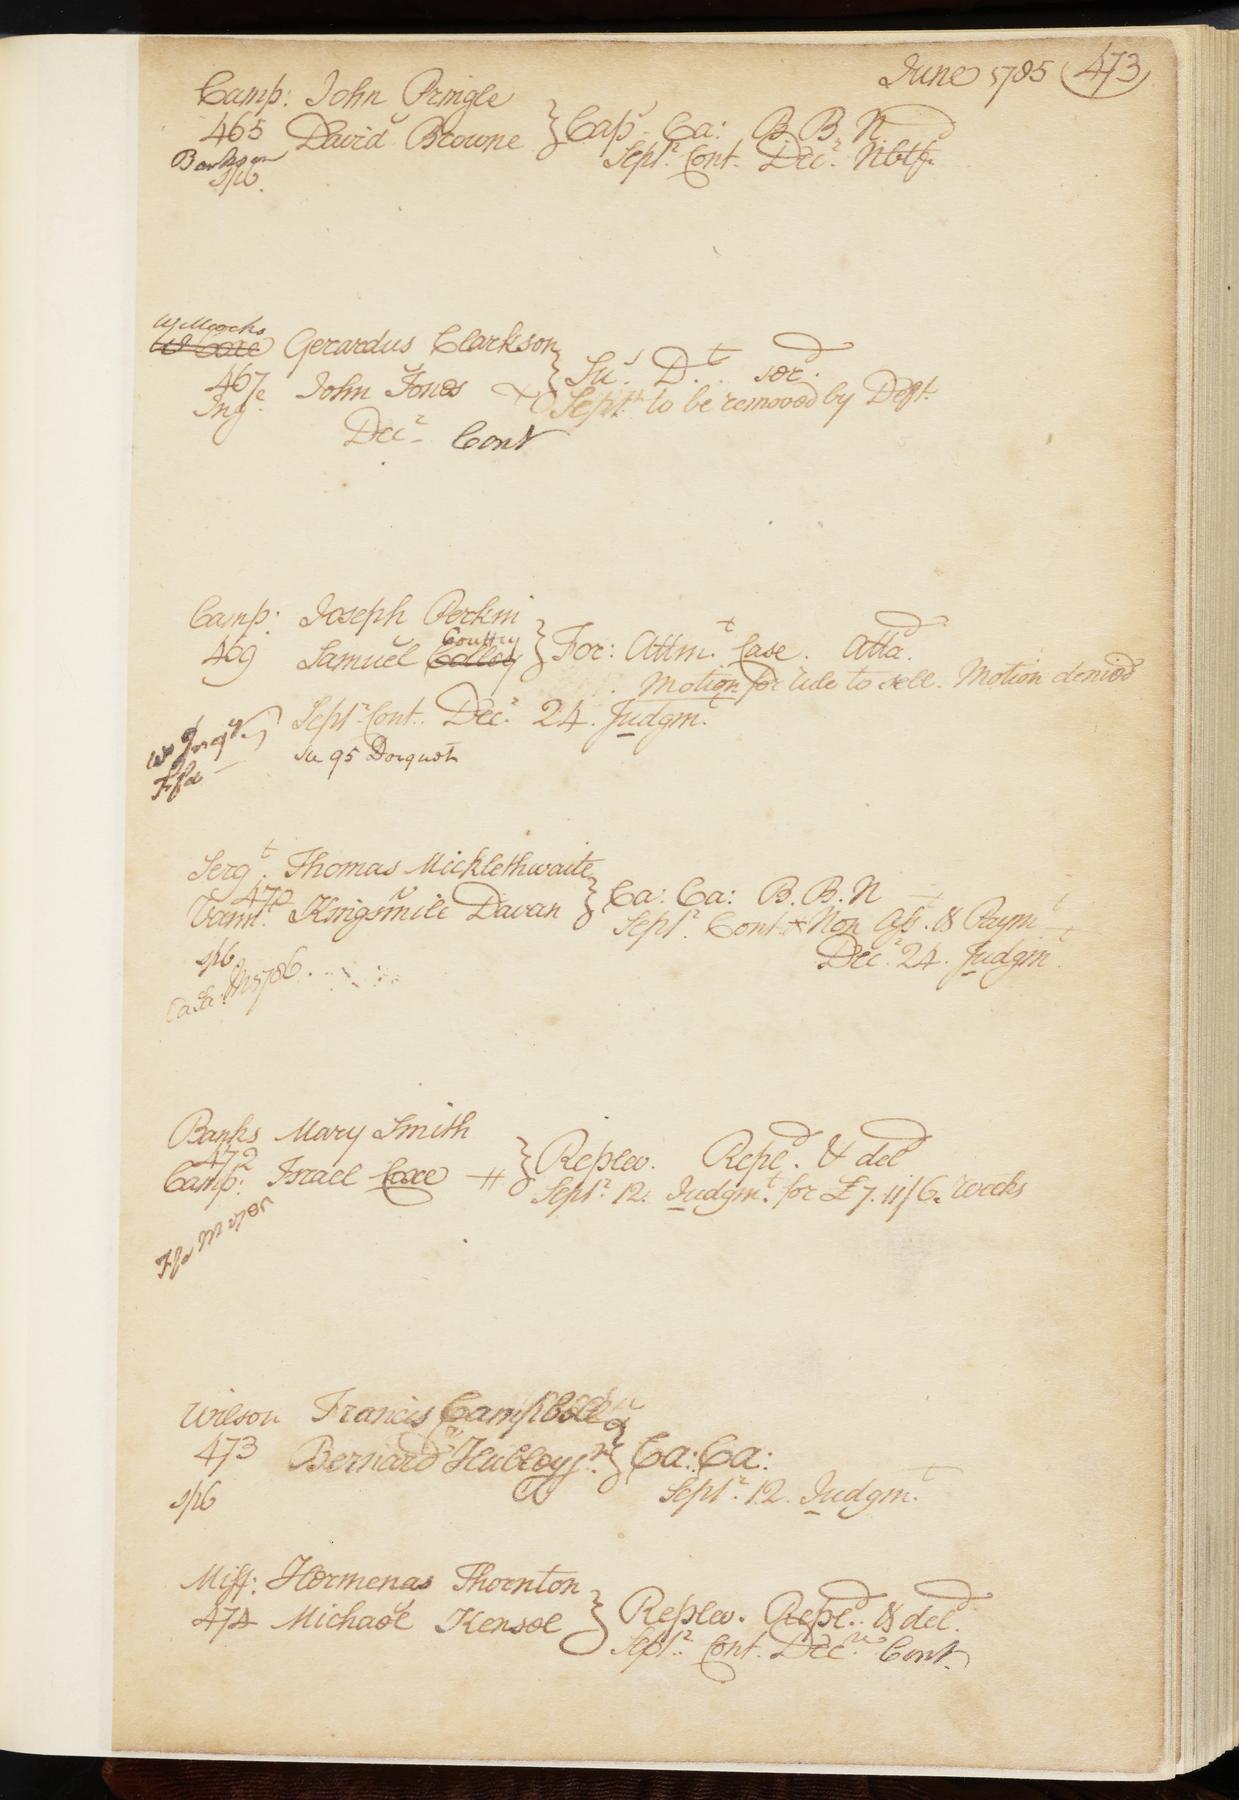 June 1785 473
Camp: John Pringle
465 v
David Browne } Cap. Ca: B. B. N
Sept.r Cont. Dec.r Nbtf.
sp6.
W Coxe Gerardus Clarkson
467 v
John Jones } Su. D.t ser.d
Ing.e Sept.r to be removed by Deft.
Dec.r Cont
Camp. Joseph Perkin
469 v
Samuel Colley Coultry } For: Attm.t Case. Atta.d
Motion for rule to sell. Motion denied
Sept.r Cont. Dec.r 24. Judgm.t
W Ing.
Ffa
Serg.t Thomas Micklethwaite
470 v
Vann.t Kingsmile Davan } Ca: Ca: B. B. N
Sept.r Cont. Non Ass. & Paym.t
Dec.r 24. Judgm.t
sp6
CaSa. M 1786.
Banks Mary Smith
472 v
Camp: Israel Coxe } Replev. Repl.d & del.d
Sept.r 12. Judgm.t for £7.11/6. Weeks
Wilson Francis Campbell
473 v
Bernard Hubley jr. } Ca: Ca:
sp6 Sept.r 12. Judgm.t
Miff: Hermenas Thornton
474 v
Michael Kensel } Replev. Repl.d & del.d
Sept.r Cont. Dec.r Cont.